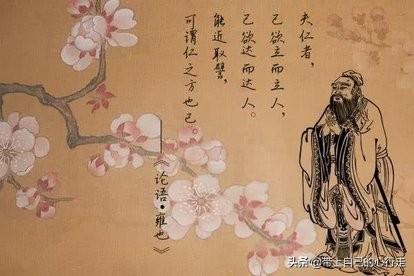 夫仁者，
己欲立而立人，
己欲达而达人。
能近取譬，
可谓仁之方也已。
——《论语•雍也》
头条@带上自己的心行走